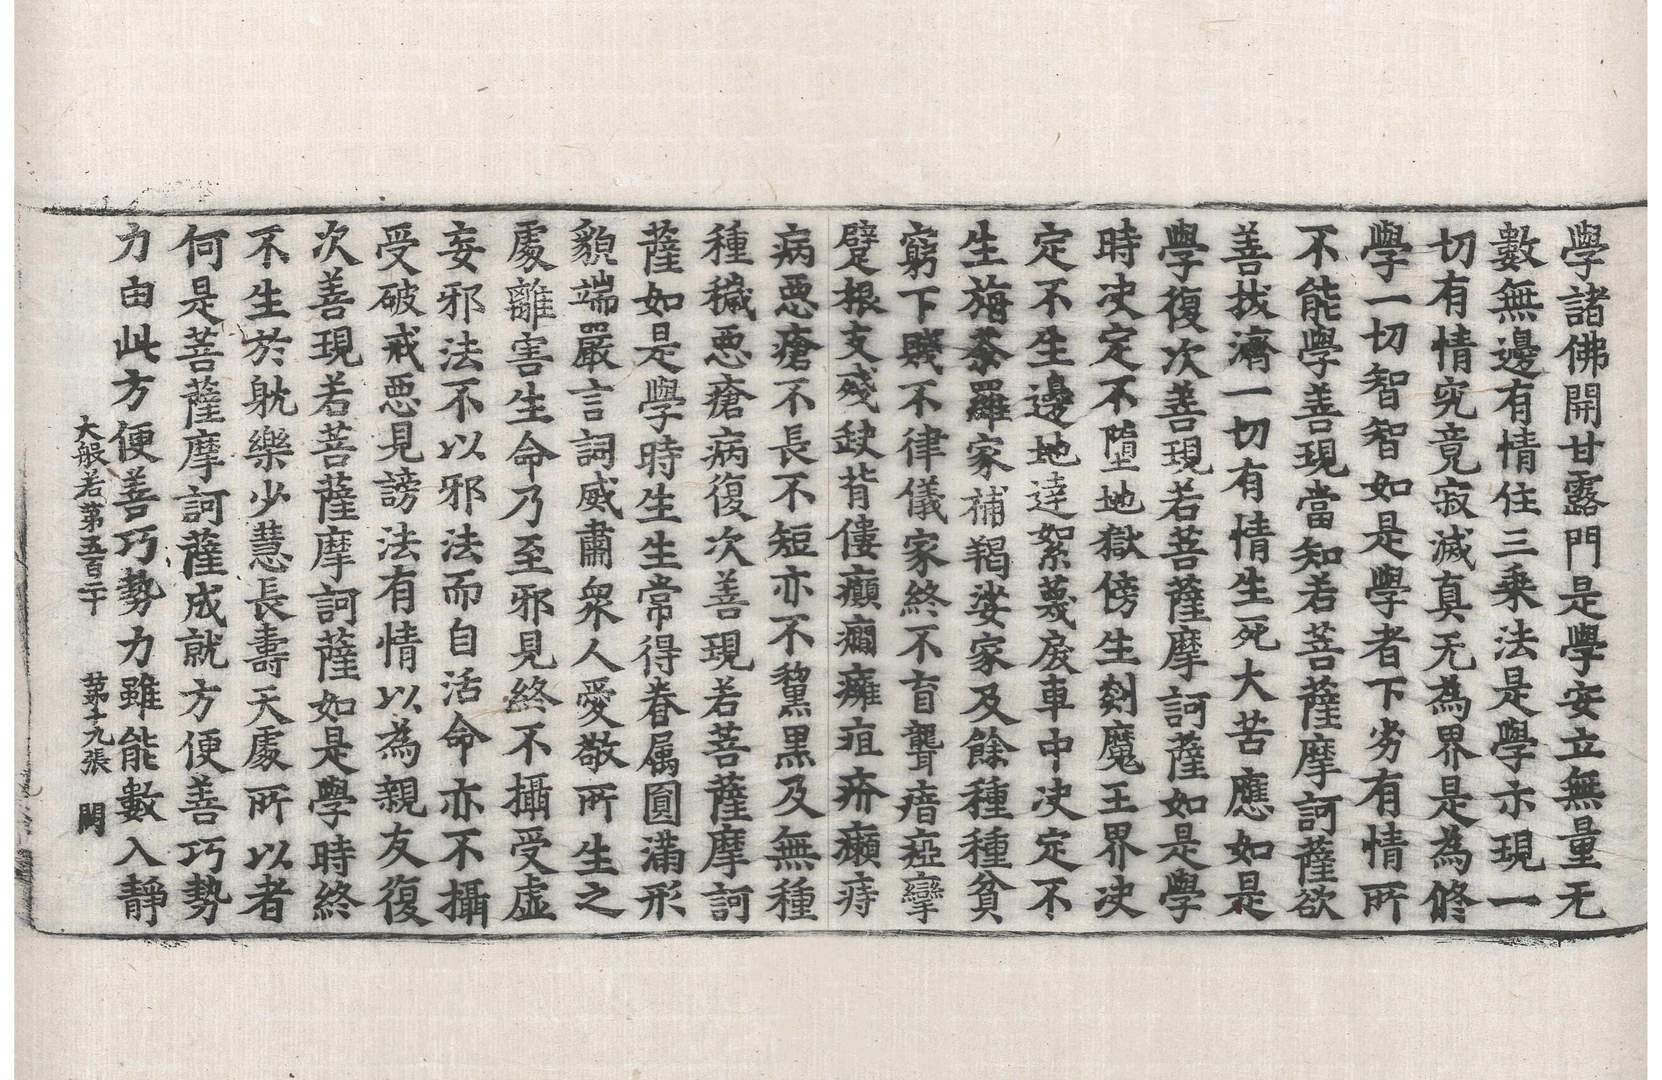 學諸佛開甘露門是學安立無量无
數無邊有情住三乘法是學示現一
切有情究竟寂滅真无為界是為修
學一切智智如是學者下劣有情所
不能學善現當知若菩薩摩訶薩欲
善拔濟一切有情生死大苦應如是
學復次善現若菩薩摩訶薩如是學
時决定不墮地獄傍生剡魔王界决
定不生邊地達絮蔑戾車中决定不
生旃荼羅家補羯娑家及餘種種貧
窮下賤不律儀家終不盲聾瘖瘂攣
躄根支殘缺背僂癲癎癰疽疥癩痔
病惡瘡不長不短亦不黧黑及無種
種穢惡瘡病復次善現若菩薩摩訶
薩如是學時生生常得眷属圓滿形
貌端嚴言詞威肅衆人愛敬所生之
處離害生命乃至邪見終不攝受虛
妄邪法不以邪法而自活命亦不攝
受破戒惡見謗法有情以為親友復
次善現若菩薩摩訶薩如是學時終
不生於躭樂少慧長壽天處所以者
何是菩薩摩訶薩成就方便善巧勢
力由此方便善巧勢力雖能數入靜
大般若第五百二十 第十九張 閑